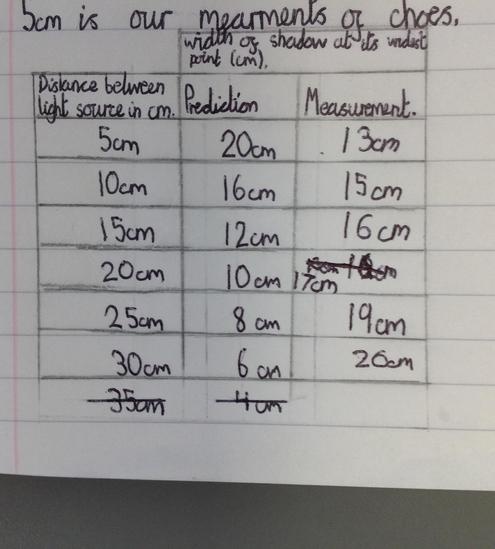 5cm is our mearments of choes.
width of shadow at its widest
point (cm).
Distance between
light source in cm. Prediction Measurement.
5cm 20cm 13cm
10cm 16cm 15cm
15cm 12cm 16cm
20cm 10cm 17cm
25cm 8cm 19cm
30cm 6cm 26cm
35cm 4cm